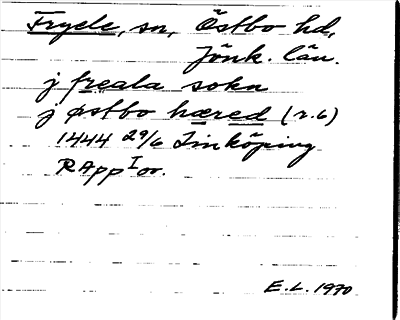 Fryele, sn, Östbo hd,
Jönk. län.
j freala sokn
j østbo hæred (r.6)
1444 29/6 Linköping
RApp I or.
E.L. 1970